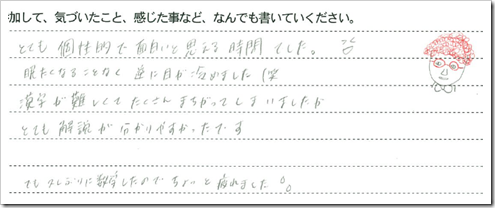 加して、気づいたこと、感じた事など、なんでも書いていください。
とても個性的で面白いと思える時間でした。
眠たくなることなく逆に目が冷めました(笑
漢字が難しくてたくさんまちがってしまいましたが
とても解説が分かりやすかったです
でも久しぶりに勉強したのでちょいと疲れました